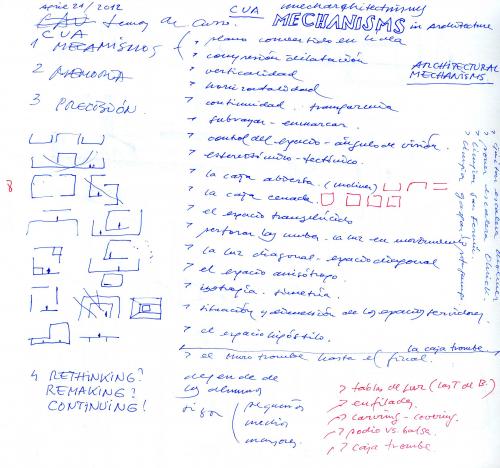 april 21/2012
CUA mecharchitectnisms
CAU temas de curso.
MECHANISMS in architecture
CUA
ARCHITECTURAL MECHANISMS
1 MECANISMOS
2 MEMORIA
3 PRECISIÓN.
plano convertido en línea
compresión dilatación
verticalidad
horizontalidad
continuidad. transparencia
subrayar - enmarcar.
control del espacio - ángulos de visión.
estereotómico - tectónico.
la caja abierta. (moliner)
la caja cerrada.
el espacio translúcido
perforar las nubes. la luz en movimiento
la luz diagonal. espacio diagonal
el espacio anisótropo.
isotropía. simetría.
situación y dimensión de los espacios servidores.
el espacio hipóstilo.
la caja trombe
el muro trombe hasta el final.
8
4 RETHINKING?
REMAKING?
CONTINUING!
depende de
los alumnos
si son
pequeños
medios
mayores.
tablas de luz (las T de B.)
enfilades
carving - covering.
podio vs. balsa.
caja trombe.